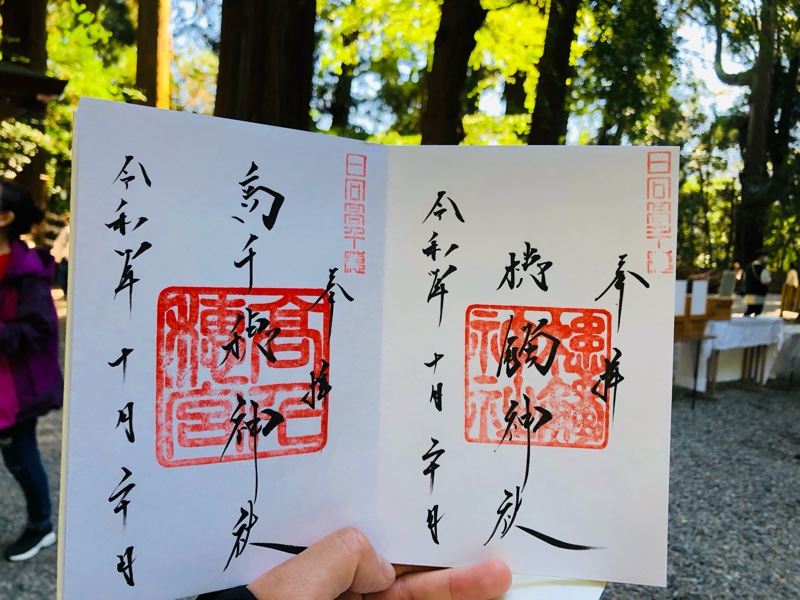 日向高千穂
奉拝
槵觸神社
令和年十月二十日
槵觸神社
日向高千穂
奉拝
高千穂神社
令和年十月二十日
高千穂宮